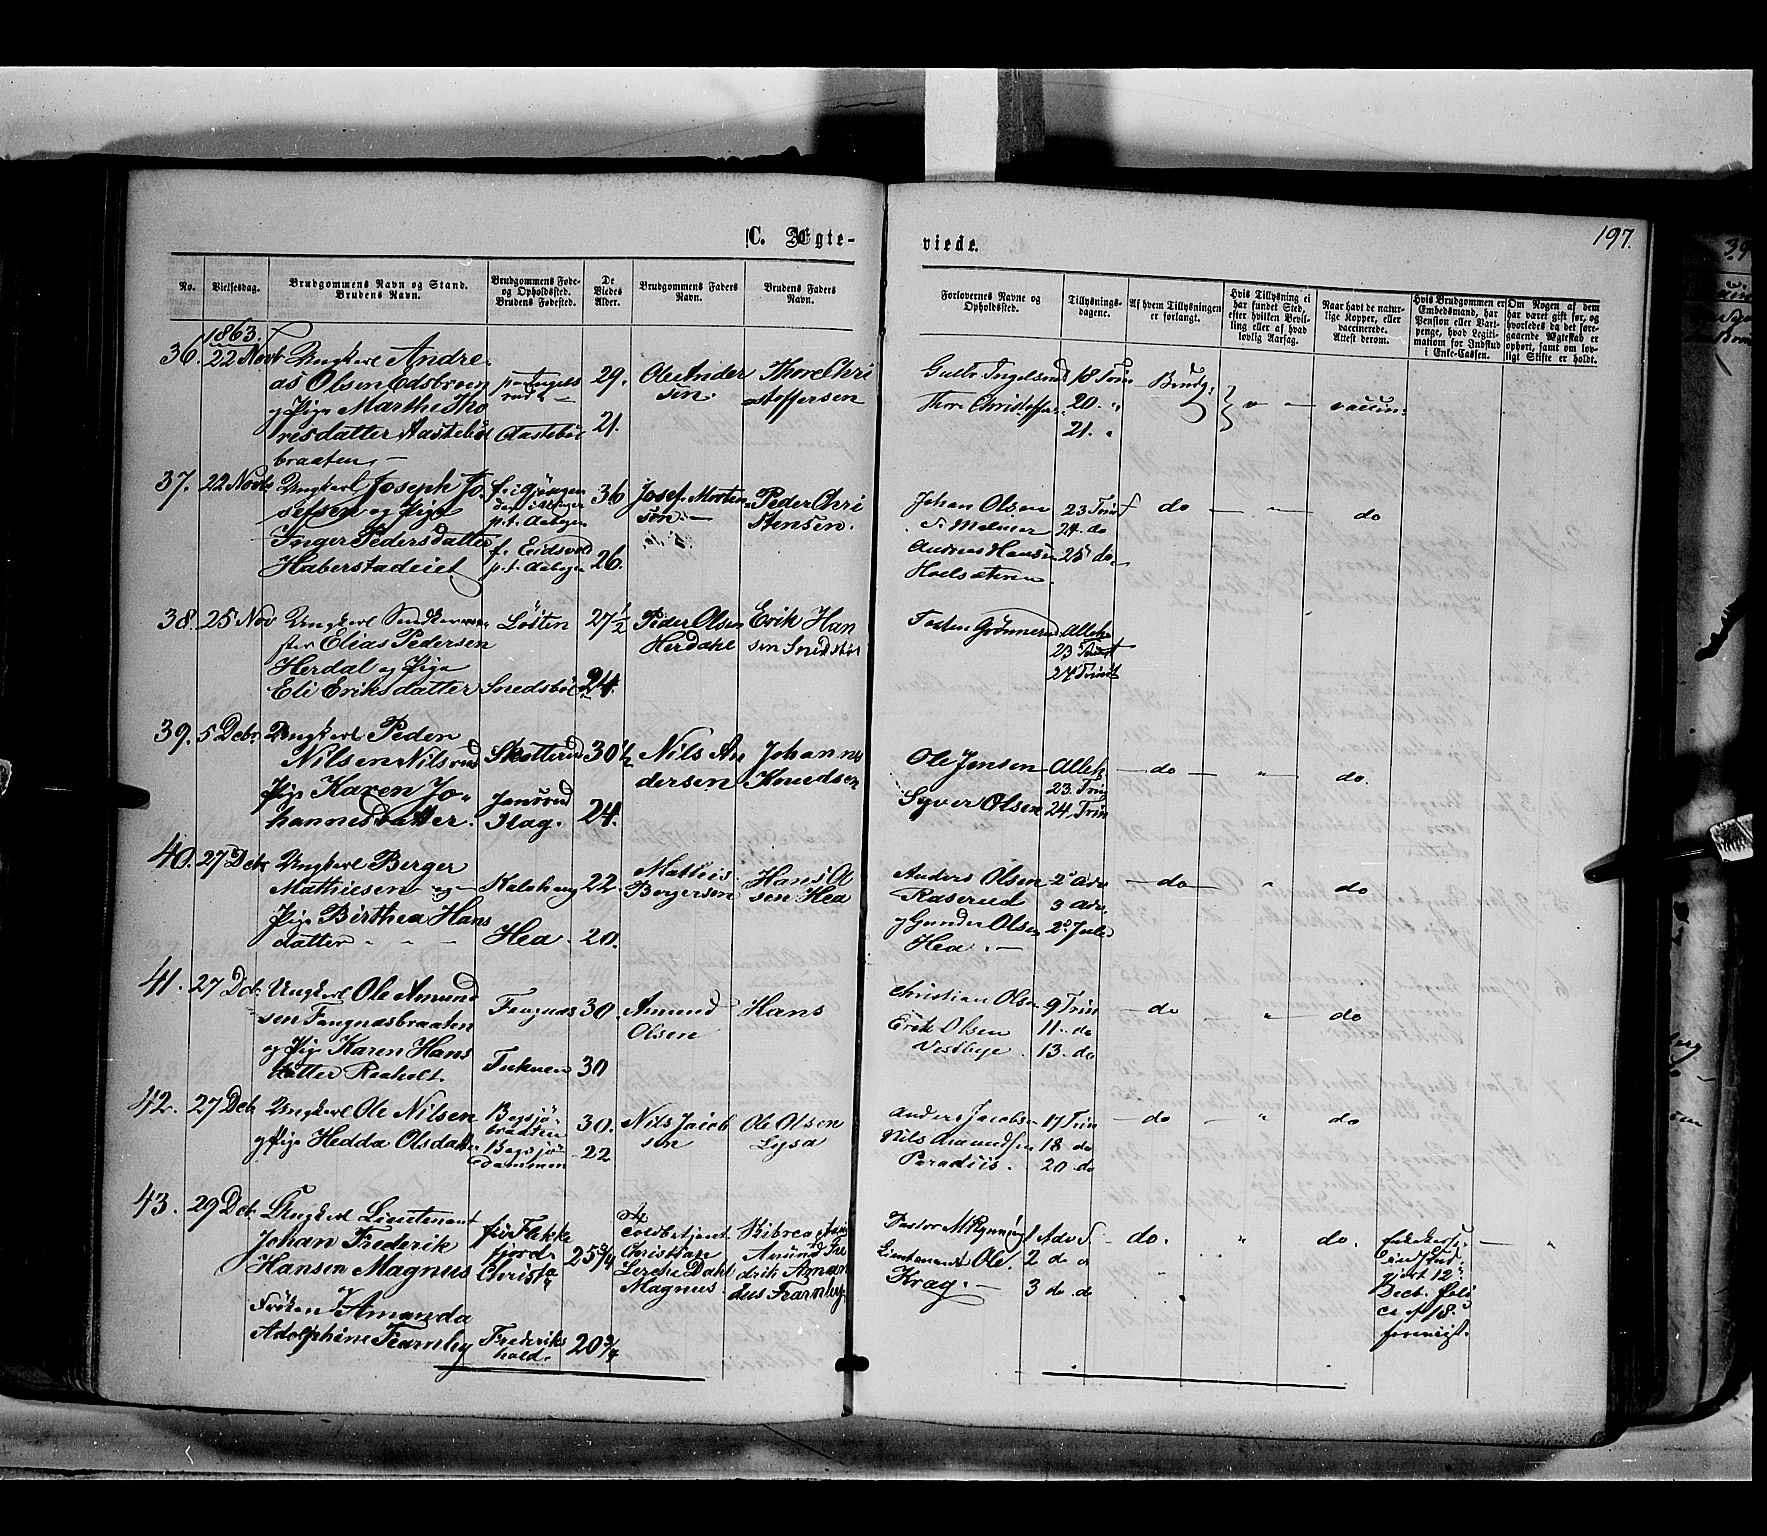 C. Ægte-
viede.
197.
No.
Vielsesdag.
Brudgommens Navn og Stand.
Brudens Navn.
Brudgommens Føde-
og Opholdssted.
Brudens Fødested.
De
Viedes
Alder.
Brudgommens Faders
Navn.
Brudens Faders
Navn.
Forlovernes Navne og
Opholdssted.
Tillysnings-
dagene.
Af hvem Tillysningen
er forlangt.
Hvis Tillysning ei
har fundet Sted,
efter hvilken Bevil-
ling eller af hvad
lovlig Aarsag.
Naar havt de natur-
lige Kopper, eller
vaccinerede.
Attest derom.
Hvis Brudgommen er
Embedsmand, har
Pension eller Vart-
penge, hvad Legiti-
mation for Indskud
i Enke-Cassen.
Om Nogen af dem
har været gift før, og
hvorledes da det fore-
gaaende Ægteskab er
ophørt, samt om lov-
ligt Skifte er holdt.
1863.
36. 22 Novb Ungkarl Andre
as Olsen Edsbroen
og Pige Marthe Tho
resdatter Aastebøl
braaten
Aastebøl
29.
21.
Ole Ander
sen.
Thore Chri
stoffersen
Thore Christoffers.
18 Trin
20. "
21. "
Brudg:
vaccin:
37. 22 Novb Ungkarl Joseph Jo
sefsen og Pige
Inger Pedersdatter
Haberstadeiet
f. Eidsvold
36
26.
Josef Morten
sen.
Peder Chri
stensen.
Johan Olsen
Andreas Hansen
23 Trin
24. do
25 do
do
do
38. 25 Nov Ungkarl
Elias Pedersen
Herdal og Pige
Eli Eriksdatter
Løiten
27 1/2
24.
Peder Olsen
Herdahl
Erik Han
sen
23 Trinit
24 Trinit
39. 5 Decbr. Ungkarl Peder
Nilsen Nilsrud
Pige Karen Jo
hannesdatter.
Skotterud
Jonsrud
Flag.
30 1/2
24.
Nils An
dersen
Johannes
Knudsen
Ole Jensen
Syver Olsen
23. Trin
24. Trin
do
do.
40. 27 Decbr Ungkarl Berger
Mathiesen og
Pige Birthea Hans
datter
Kalahaug
Hea
22.
20.
Mathiis
Bergersen
Hans Ol
sen Hea
Anders Olsen
Raserud
og Gunder Olsen
Hea
do
do
41. 27 Dcb. Ungkarl Ole Amund
sen Fangnæsbraaten
og Pige Karen Hans
datter Raaholt.
Fangnæs
30
30
Amund
Olsen
Hans
Christian Olsen
Erik Olsen
Vestbye
9 Trin
11. do
13. do
do
do
42. 27 Dcb Ungkarl Ole Nilsen
og Pige Hedda Olsdatter
Bagsjø-
braaten
Bagsjø
dammen
30.
22
Nils Jacob
sen
Ole Olsen
Lysa
Anders Jacobsen
Nils Amundsen
Paradiis.
17 Trin
18 do
20 do
do
do
43. 29 Dcb. Ungkarl Lieutenant
Johan Frederik
Hansen Magnus
og
Frøken Amanda
Adolphine Fearnley
Frederiks
hald.
25 3/4
20 3/4
Toldbetjent
Christian
Lerche Dahl
Magnus.
Amund Fre
drik Aman
dus Fearnley
Pastor
Lieutenant Ole
Krag.
1 Adv S.
2 do
3 do. do
do.
do.
12
Decb.
18.